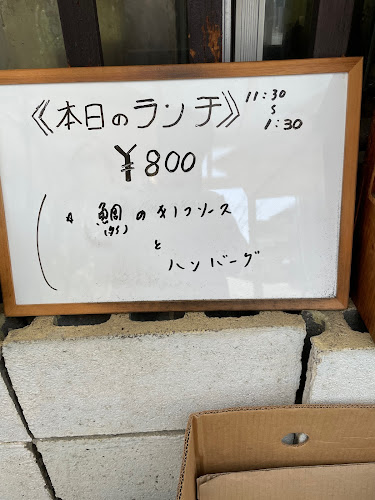 《本日のランチ》 11:30
〜
1:30
¥800
鯛のキノコソース
と
ハンバーグ